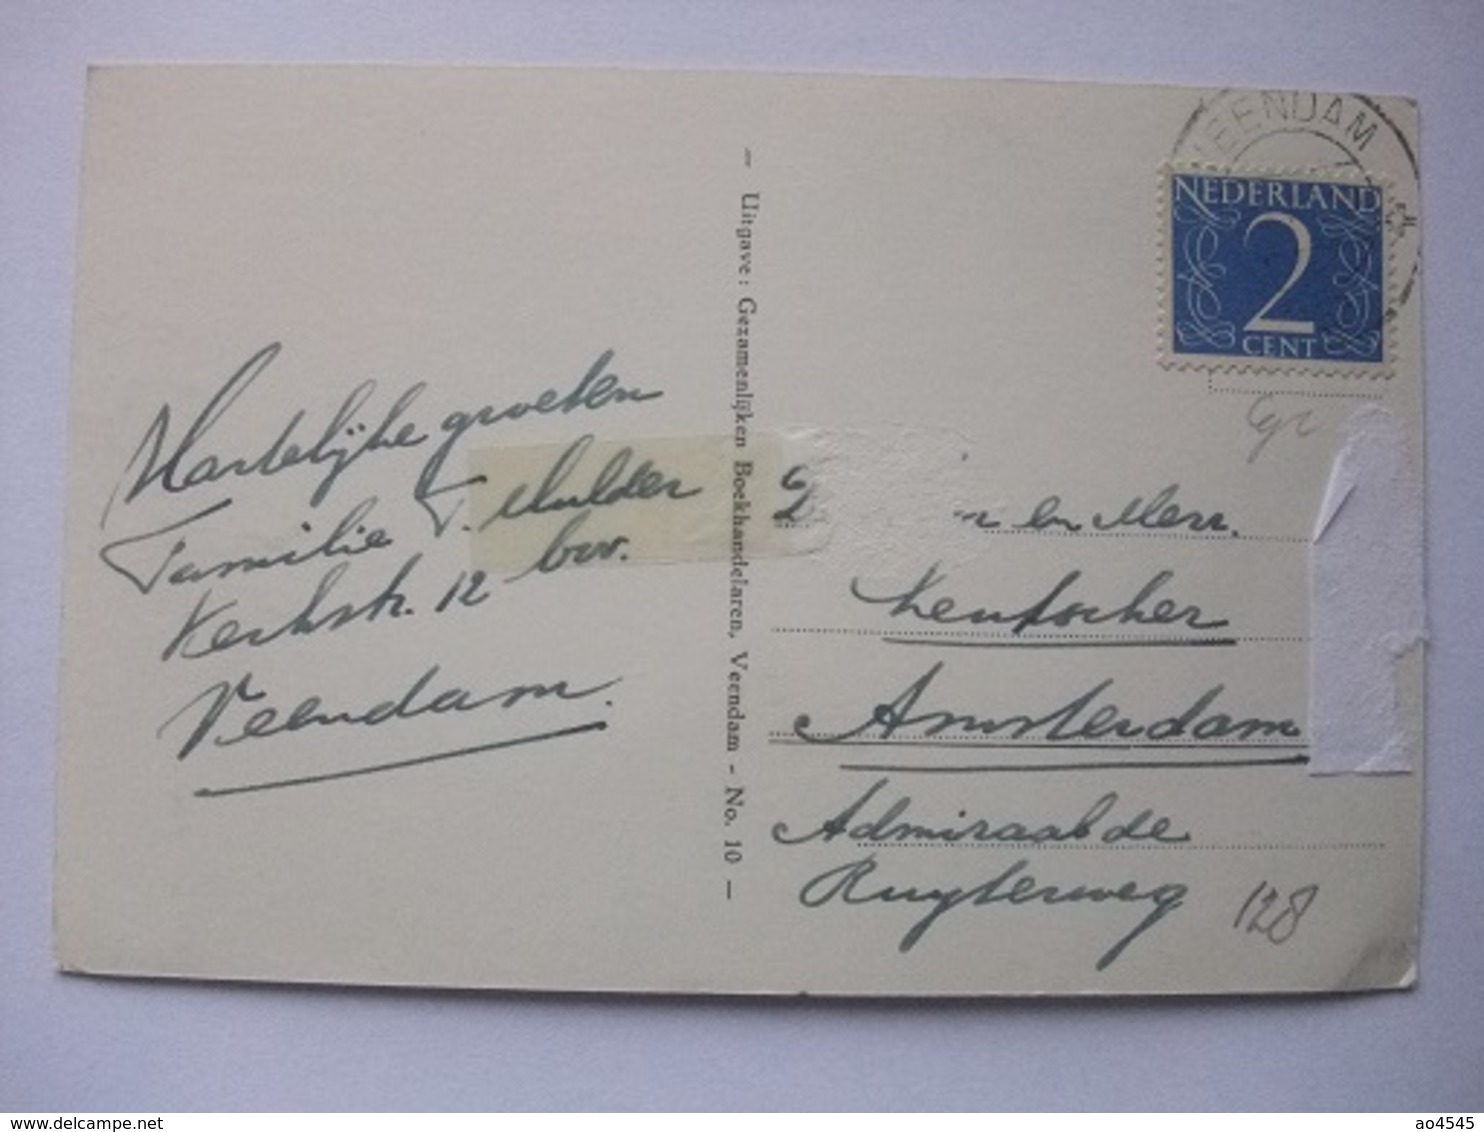 Hartelijke groeten
Familie T. Mulder
Kerkstr. 12 bov.
Veendam.
— Uitgave: Gezamenlijken Boekhandelaren, Veendam - No. 10 —
VEENDAM
NEDERLAND
2
CENT
en Merr.
Keutscher
Amsterdam
Admiraal de
Ruyterweg 128
delcampe.net
ao4545